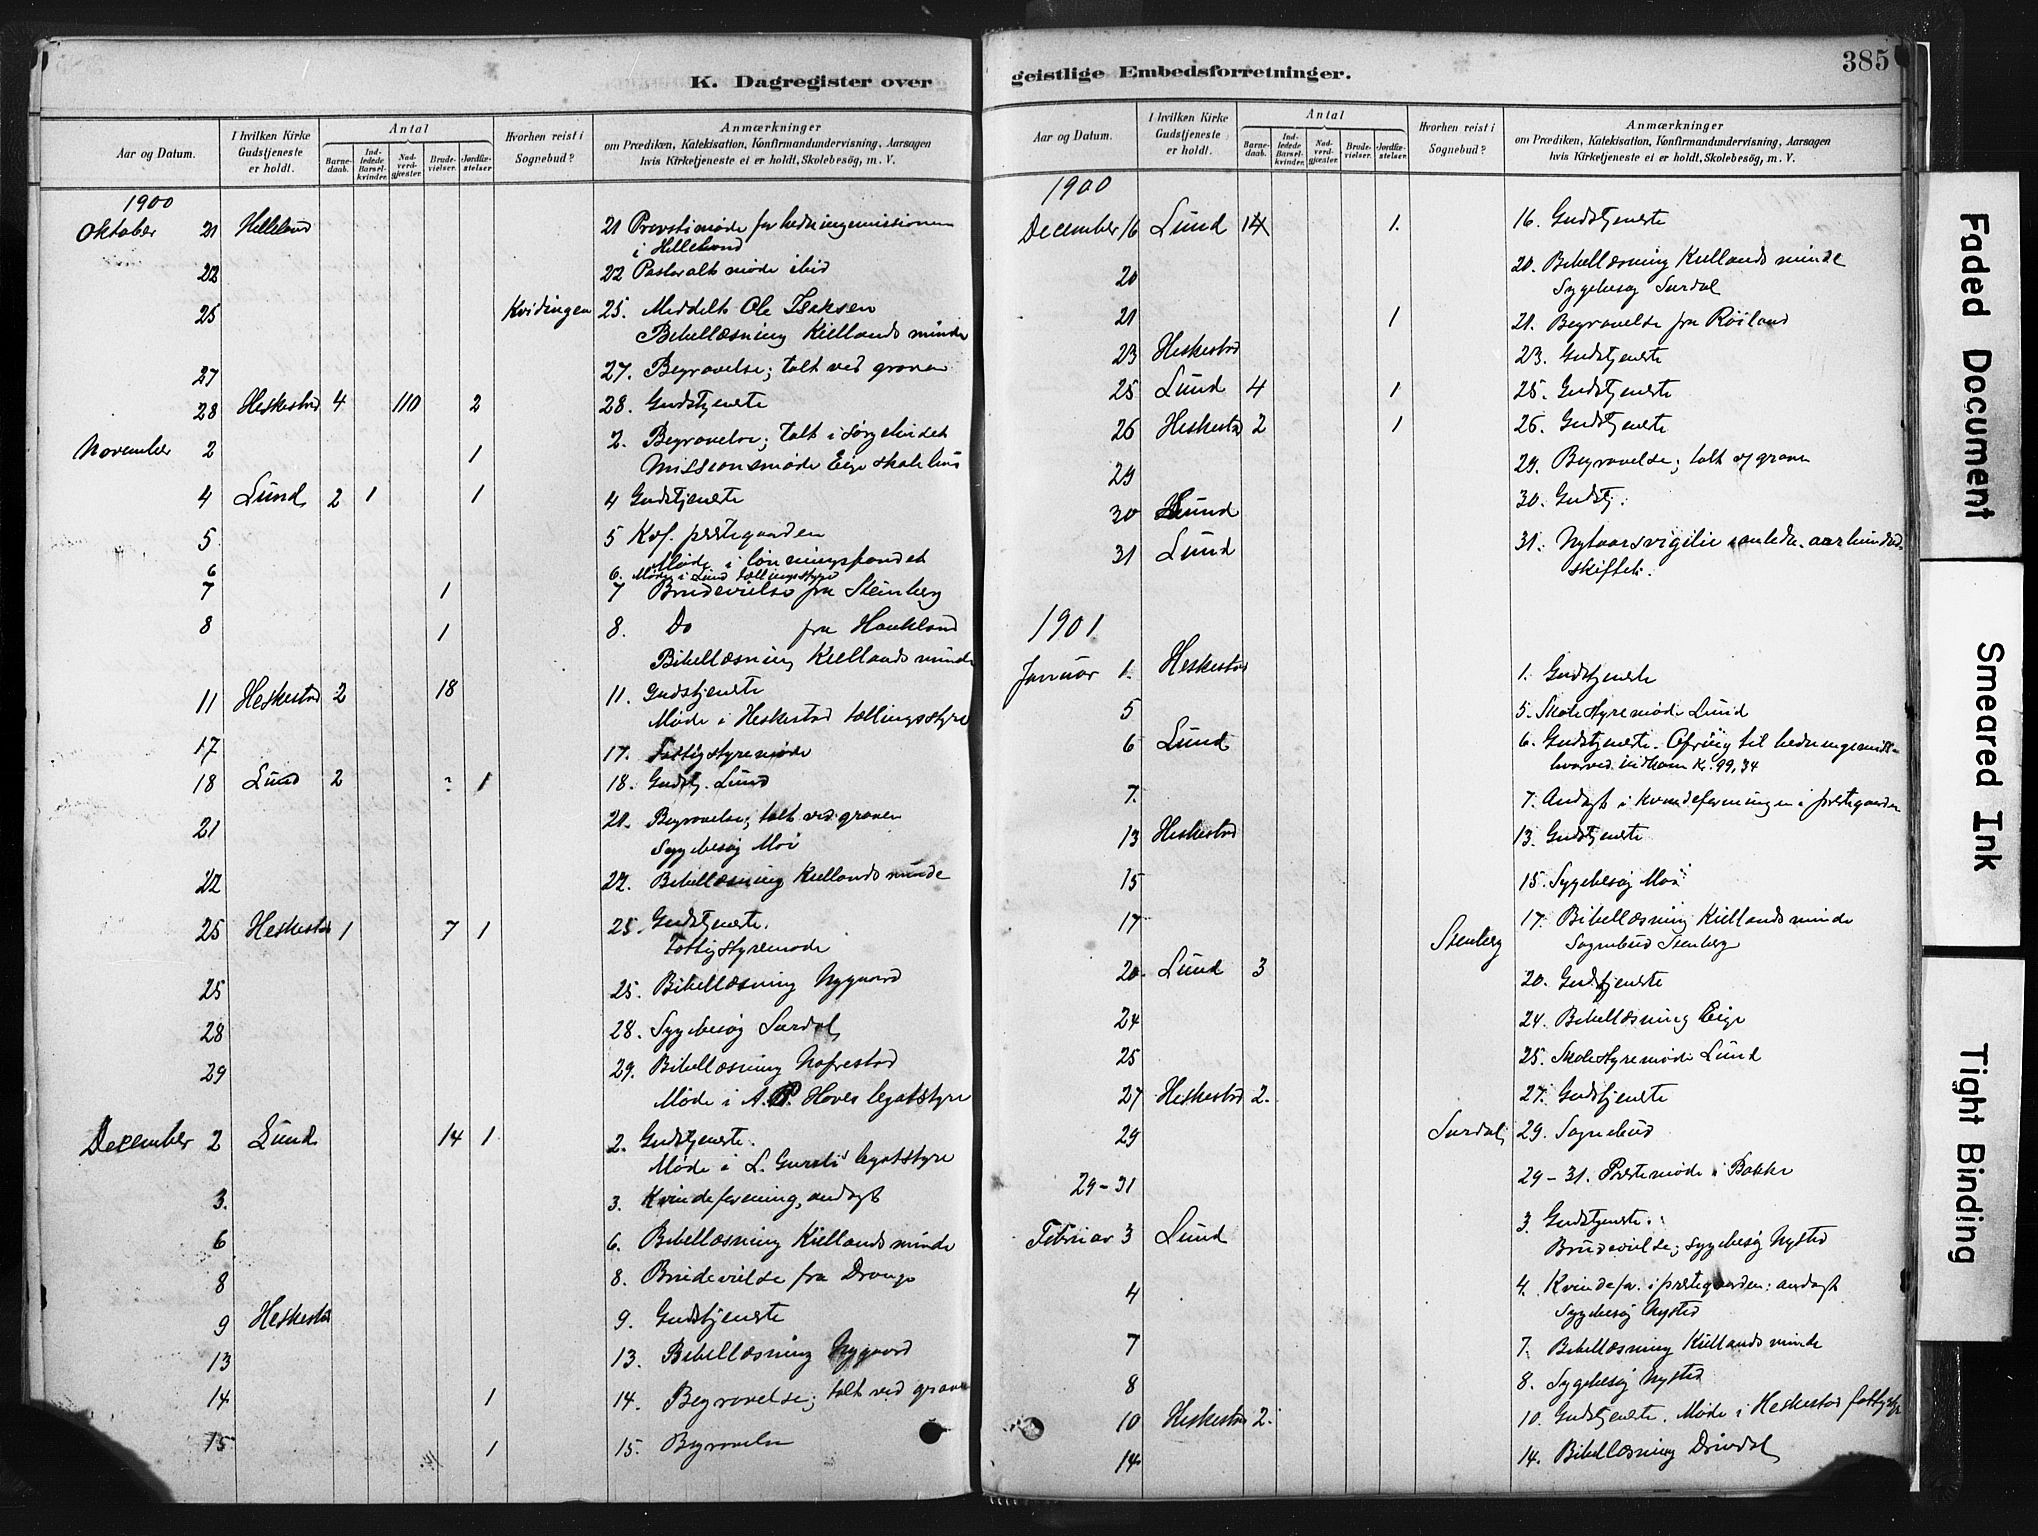 K. Dagregister over
Aar og Datum.
I hvilken Kirke Gudstjeneste er holdt.
Antal
Barne-daab.
Ind-ledede Barsel-kvinder.
Nad-verd-gjæster.
Brude-vielser.
Jordfæ-stelser
Hvorhen reist i Sognebud?
Anmærkninger
om Prædiken, Katekisation, Konfirmandundervisning, Aarsagen
hvis Kirketjeneste ei er holdt, Skolebesög, m. V.
1900
Oktober 21 Helleland 21 Provstimøde for hedningemissionen
i Helleland
22 22 Pastoralt møde ibid
25 Kvidingen 25. Meddelt Ole Isaksen
Bibellæsning Kiellands minde
27 27. Begravelse; talt ved graven
28 Heskestad 4 110 2 28. Gudstjeneste
November 2 1 2. Begravelse; talt i sørgehuset
Missionsmøde Eige skolehus
4 Lund 2 1 1 4 Gudstjeneste
5 5 Kof. prestegaarden
Møde i lønningsfondet
6 6. Møde i Lund tællingsstyre
7 1 7 Brudevielse fra Steinberg
8 1 8. Do fra Haukland
Bibellæsning Kiellands minde
11 Heskestad 2 18 11. Gudstjeneste
Møde i Heskestad tællingsstyre
17 17. Fattigstyremøde
18 Lund 2 ? 1 18. Gudstj. Lund
21 21. Begravelse; talt ved graven
Sygebesøg Moi
22 22. Bibellæsning Kiellands minde
25 Heskestad 1 7 1 25. Gudstjeneste.
Fattigstyremøde
25 25. Bibellæsning Nygaard
28 28. Sygebesøg Surdal
29 29. Bibellæsning Hafrestad
Møde i A. P. Hoves legatstyre
December 2 Lund 14 1 2. Gudstjeneste.
Møde i L. legatstyre
3. 3. Kvindeforening, andagt
6 6. Bibellæsning Kiellands minde
8 8. Brudevielse fra Drange
9 Heskestad 9. Gudstjeneste
13 13. Bibellæsning Nygaard
14 1 14. Begravelse; talt ved graven
15 1 15. Begravelse
geistlige Embedsforretninger.
385
Aar og Datum.
I hvilken Kirke Gudstjeneste er holdt.
Antal
Barne-daab.
Ind-ledede Barsel-kvinder.
Nad-verd-gjæster.
Brude-vielser.
Jordfæ-stelser
Hvorhen reist i Sognebud?
Anmærkninger
om Prædiken, Katekisation, Konfirmandundervisning, Aarsagen
hvis Kirketjeneste ei er holdt, Skolebesög, m. V.
1900
December 16 Lund 14 1. 16. Gudstjeneste
20 20. Bibellæsning Kiellands minde
Sygebesøg Surdal
21 1 21. Begravelse fra Røiland
23 Heskestad 23. Gudstjeneste
25 Lund 4 1 25. Gudstjeneste
26 Heskestad 2 1 26. Gudstjeneste
29 29. Begravelse; talt v/ graven
30 Lund 30. Gudstj.
31 Lund 31. Nytaarsvigilie i anledn. aarhundred-
skiftet.
1901
Januar 1. Heskestad 1. Gudstjeneste
5 5. Skolestyremøde Lund
6 Lund 6. Gudstjeneste. Ofring til hedningemiss.
hvorved indkom Kr. 99,34
7. 7. Andagt i kvindeforeningen i prestegaarden
13 Heskestad 13. Gudstjeneste
15 15. Sygebesøg Moi
17 Stenberg 17. Bibellæsning Kiellands minde
Sognebud Stenberg
20. Lund 3 20. Gudstjeneste
24 24. Bibellæsning Eige
25 25. Skolestyremøde Lund
27 Heskestad 2. 27. Gudstjeneste
29 Surdal 29. Sognebud
29-31 29-31. Prestemøde i Bakke
Februar 3 Lund 3. Gudstjeneste.
Brudevielse; sygebesøg Nysted
4 4. Kvindefor. i prestegaarden; andagt
Sygebesøg Nysted
7 7. Bibellæsning Kiellands minde
8 8. Sygebesøg Nysted
10 Heskestad 2. 10. Gudstjeneste. Møde i Heskestad fattigstyre
14 14. Bibellæsning Drivdal
Faded Document
Smeared Ink
Tight Binding